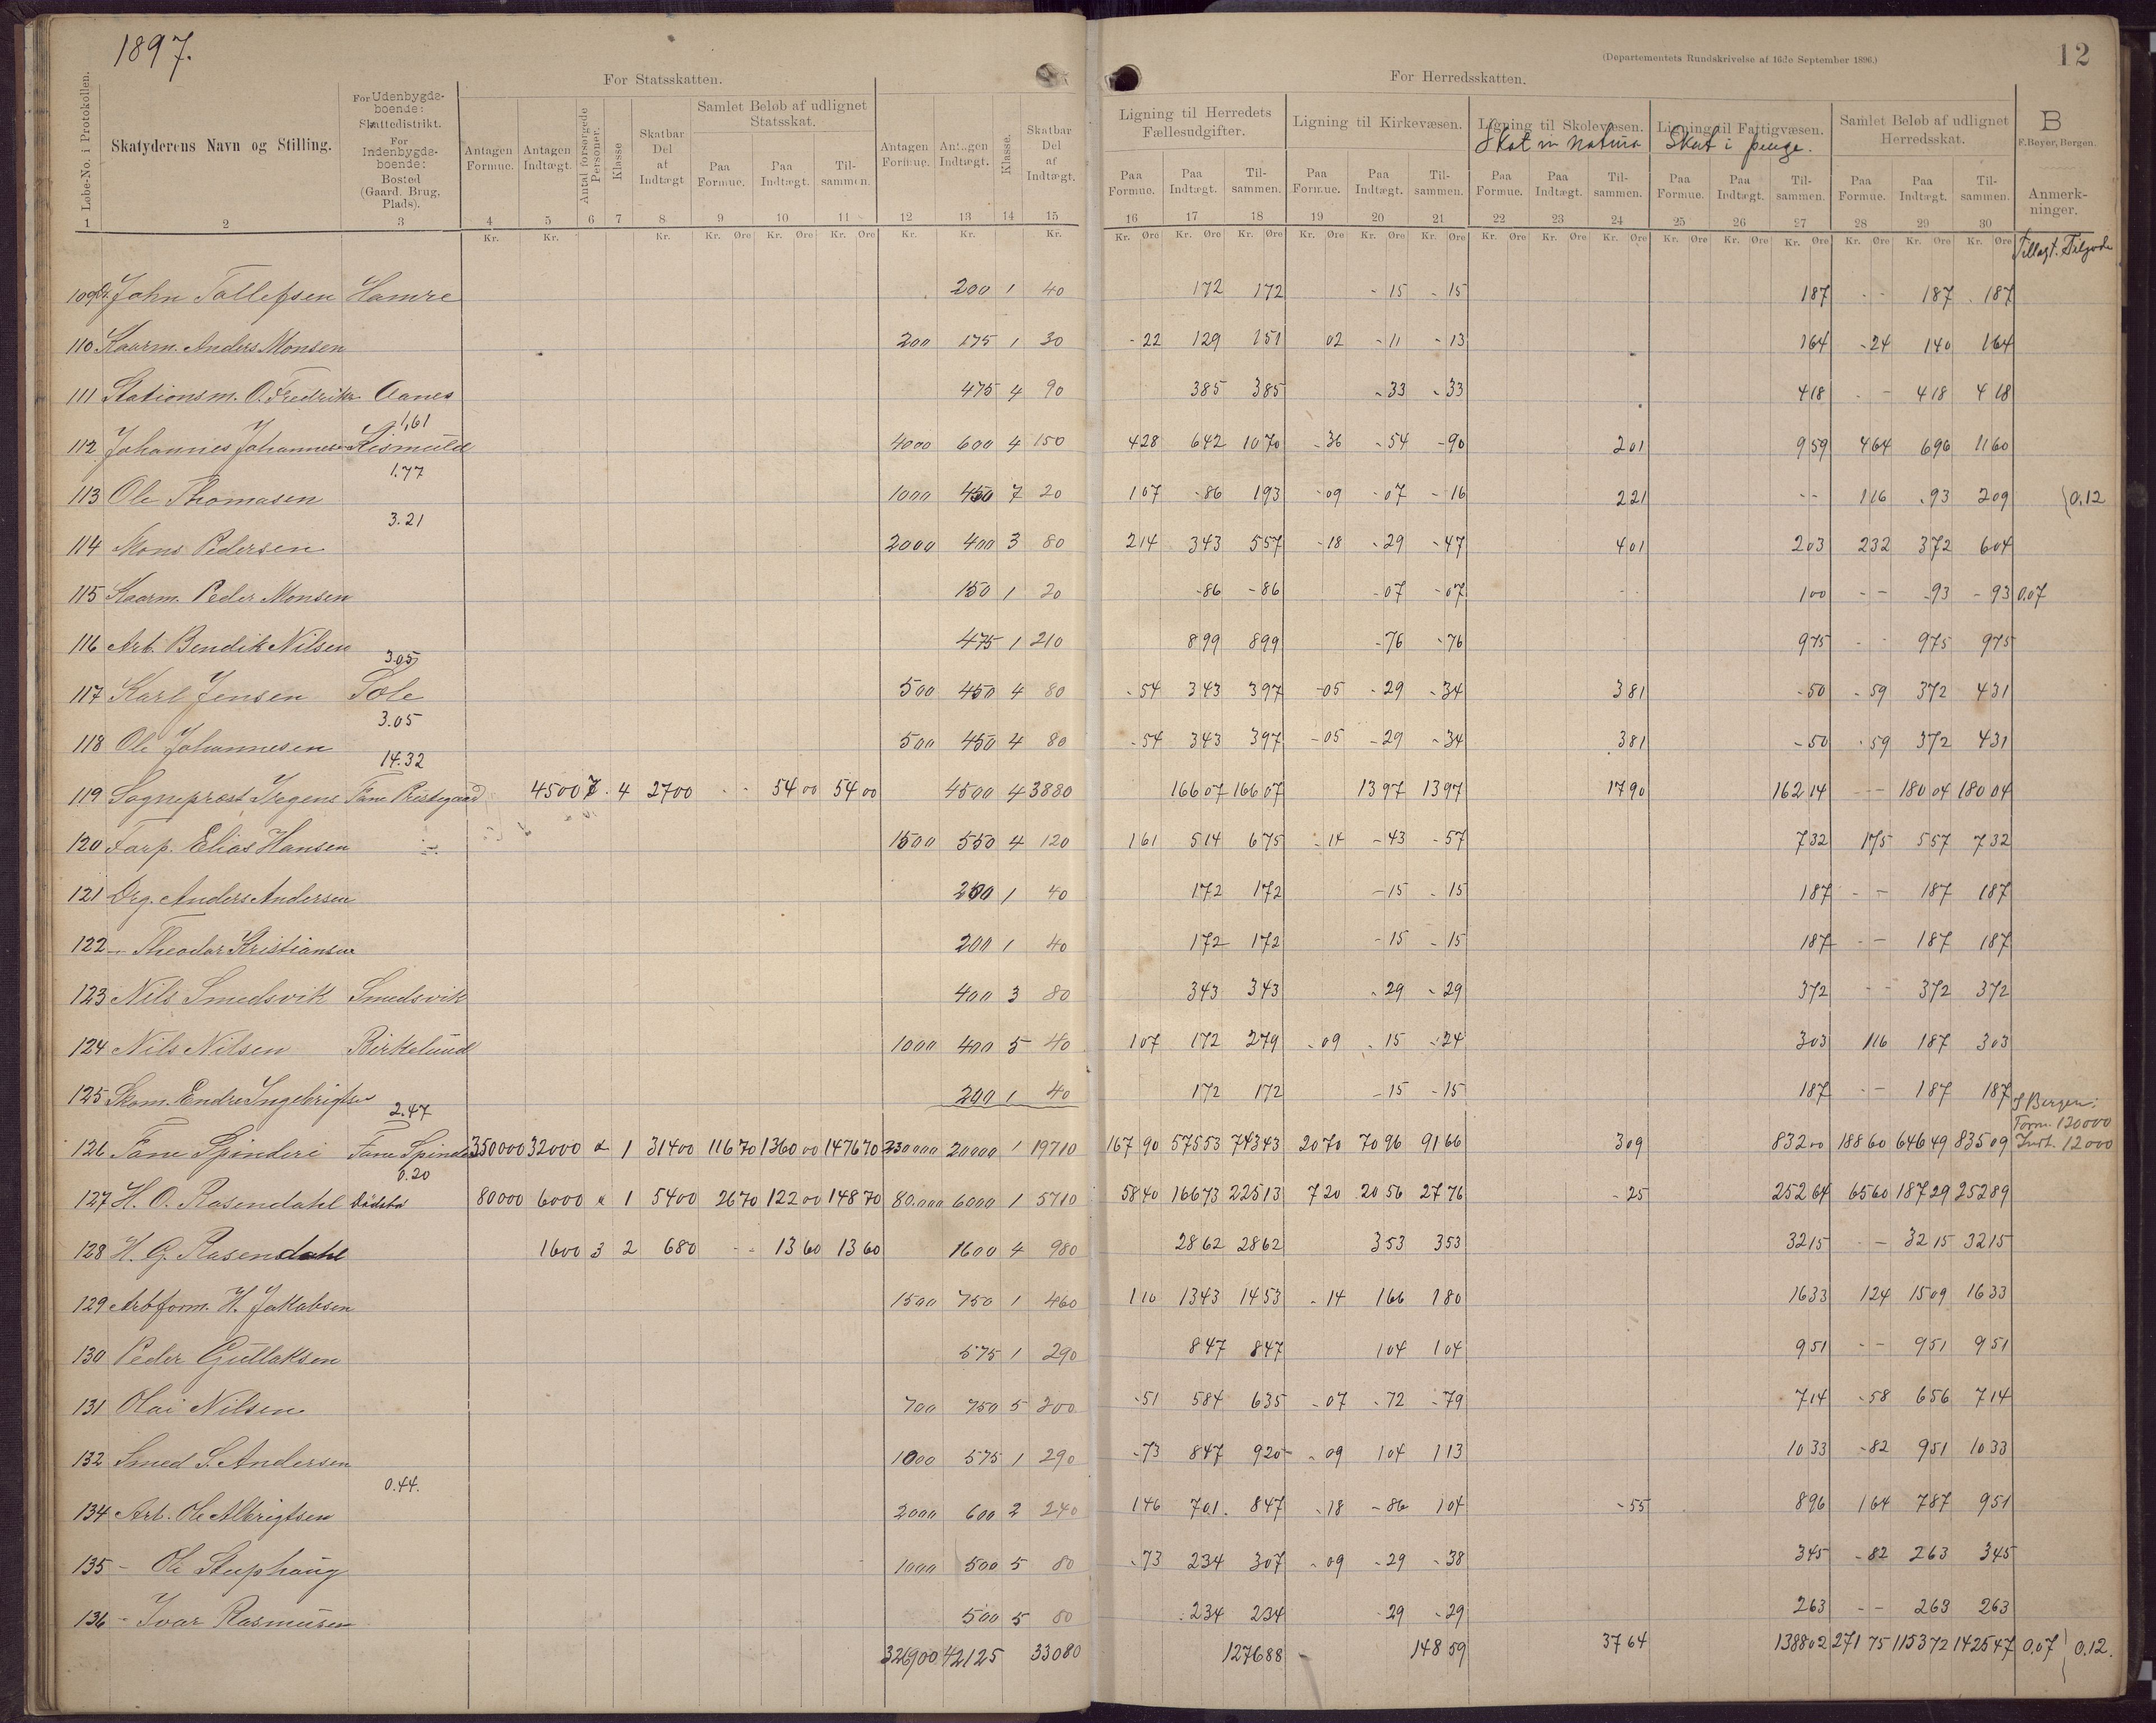 1897.
12
(Departementets Rundskrivelse af 16de September 1896.)
For Statsskatten.
For Herredsskatten.
Løbe-No. i Protokollen.
Skatyderens Navn og Stilling.
For Udenbygds-boende:
Skattedistrikt.
For Indenbygds-boende:
Bosted (Gaard, Brug, Plads).
Antagen Formue.
Antagen Indtægt.
Antal forsørgede Personer.
Klasse
Skatbar Del af Indtægt
Samlet Beløb af udlignet Statsskat.
Paa Formue. Paa Indtægt. Til-sammen.
Antagen Formue.
Antagen Indtægt.
Klasse.
Skatbar Del af Indtægt.
Ligning til Herredets Fællesudgifter.
Ligning til Kirkevæsen.
Ligning til Skolevæsen.
Skat in natura
Ligning til Fattigvæsen.
Skat i penge.
Samlet Beløb af udlignet Herredsskat.
Paa Formue. Paa Indtægt. Til-sammen. Paa Formue. Paa Indtægt. Til-sammen. Paa Formue. Paa Indtægt. Til-sammen. Paa Formue. Paa Indtægt. Til-sammen. Paa Formue. Paa Indtægt. Til-sammen.
B
F. Beyer, Bergen.
Anmerk-ninger.
1 2 3 4 5 6 7 8 9 10 11 12 13 14 15 16 17 18 19 20 21 22 23 24 25 26 27 28 29 30
Kr. Kr. Kr. Kr. Øre Kr. Øre Kr. Øre Kr. Kr. Kr. Kr. Øre Kr. Øre Kr. Øre Kr. Øre Kr. Øre Kr. Øre Kr. Øre Kr. Øre Kr. Øre Kr. Øre Kr. Øre Kr. Øre Kr. Øre Kr. Øre Kr. Øre
Tillagt. Tilgode
109 John Tollefsen Hamre 200 1 40 172 172 - 15 - 15 187 - - 187 187
110 Kaarm. Anders Monsen 200 175 1 30 - 22 129 151 02 - 11 - 13 164 - 24 140 164
111 Stationsm. O. Fredriks. Aanes 475 4 90 385 385 - 33 - 33 418 - - 418 418
1,61
112 Johannes Johannesen Lismuld 4000 600 4 150 428 642 1070 - 36 - 54 - 90 201 959 464 696 1160
1.77
113 Ole Thomasen 1000 450 7 20 107 - 86 193 - 09 - 07 - 16 221 - - 116 - 93 209 0.12
3.21
114 Mons Pedersen 2000 400 3 80 214 343 557 - 18 - 29 - 47 401 203 232 372 604
115 Kaarm. Peder Monsen 150 1 20 - 86 - 86 - 07 - 07 100 - - - 93 - 93 0.07
116 Arb. Bendik Nilsen 475 1 210 899 899 - 76 - 76 975 - - 975 975
3.05
117 Karl Jensen Tole 500 450 4 80 - 54 343 397 - 05 - 29 - 34 381 - 50 - 59 372 431
3.05
118 Ole Johannesen 500 450 4 80 - 54 343 397 - 05 - 29 - 34 381 - 50 - 59 372 431
14.32
119 Sogneprest Irgens Fane Prestegaard 4500 7 4 2700 - - 54 00 54 00 4500 4 3880 166 07 166 07 13 97 13 97 17 90 162 14 - - 180 04 180 04
120 Farp. Elias Hansen 1500 550 4 120 161 514 675 - 14 - 43 - 57 732 175 557 732
121 Drg. Anders Andersen 200 1 40 172 172 - 15 - 15 187 - - 187 187
122 - Theodor Kristiansen 200 1 40 172 172 - 15 - 15 187 - - 187 187
123 Nils Smedsvik Smedsvik 400 3 80 343 343 - 29 - 29 372 - - 372 372
124 Nils Nilsen Birkelund 1000 400 5 40 107 172 279 - 09 - 15 - 24 303 116 187 303
125 Skom. Endre Ingebrigtsen 200 1 40 172 172 - 15 - 15 187 - - 187 187
2.47
I Bergen:
Form. 120000
126 Fane Spinderi Fane Spinderi 350000 32000 1 31400 116 70 1360 00 1476 70 230000 20000 1 19710 167 90 575 53 743 43 20 70 70 96 91 66 309 832 00 188 60 646 49 835 09 Indt. 12000
0.20
127 H. O. Rosendahl Dødsbo 80000 6000 1 5400 26 70 122 00 148 70 80.000 6000 1 5710 58 40 166 73 225 13 7 20 20 56 27 76 - 25 252 64 65 60 187 29 252 89
128 H. G. Rosendahl 1600 3 2 680 - - 13 60 13 60 1600 4 980 28 62 28 62 3 53 3 53 32 15 - - 32 15 32 15
129 Arbform. H. Jakobsen 1500 750 1 460 1 10 13 43 14 53 - 14 1 66 1 80 16 33 1 24 15 09 16 33
130 Peder Gullaksen 575 1 290 847 847 104 104 951 - - 951 951
131 Olai Nilsen 700 750 5 200 - 51 584 635 - 07 - 72 - 79 714 - 58 656 714
132 Smed S. Andersen 1000 575 1 290 - 73 847 920 - 09 104 113 10 33 - 82 951 10 33
0.44.
134 Arb. Ole Albrigtsen 2000 600 2 240 146 701 847 - 18 - 86 104 - 55 896 164 787 951
135 - Ole Stuphaug 1000 500 5 80 - 73 234 307 - 09 - 29 - 38 345 - 82 263 345
136 - Ivar Rasmusen 500 5 80 234 234 - 29 - 29 263 - - 263 263
326900 42125 33080 1276 88 148 59 37 64 1388 02 271 75 1153 72 1425 47 0.07 0.12.